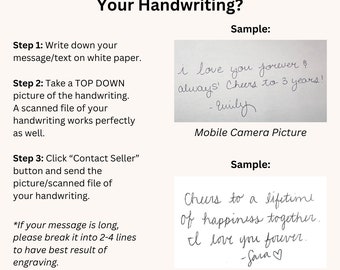 Your Handwriting?
Step 1: Write down your
message/text on white paper.
Step 2: Take a TOP DOWN
picture of the handwriting.
A scanned file of your
handwriting works perfectly
as well.
Step 3: Click “Contact Seller”
button and send the
picture/scanned file of
your handwriting.
*If your message is long,
please break it into 2-4 lines
to have best result of
engraving.
Sample:
i love you forever &
always! Cheers to 3 years!
-Emily
Mobile Camera Picture
Sample:
Cheers to a lifetime
of happiness together.
I love you forever.
-Sara♡